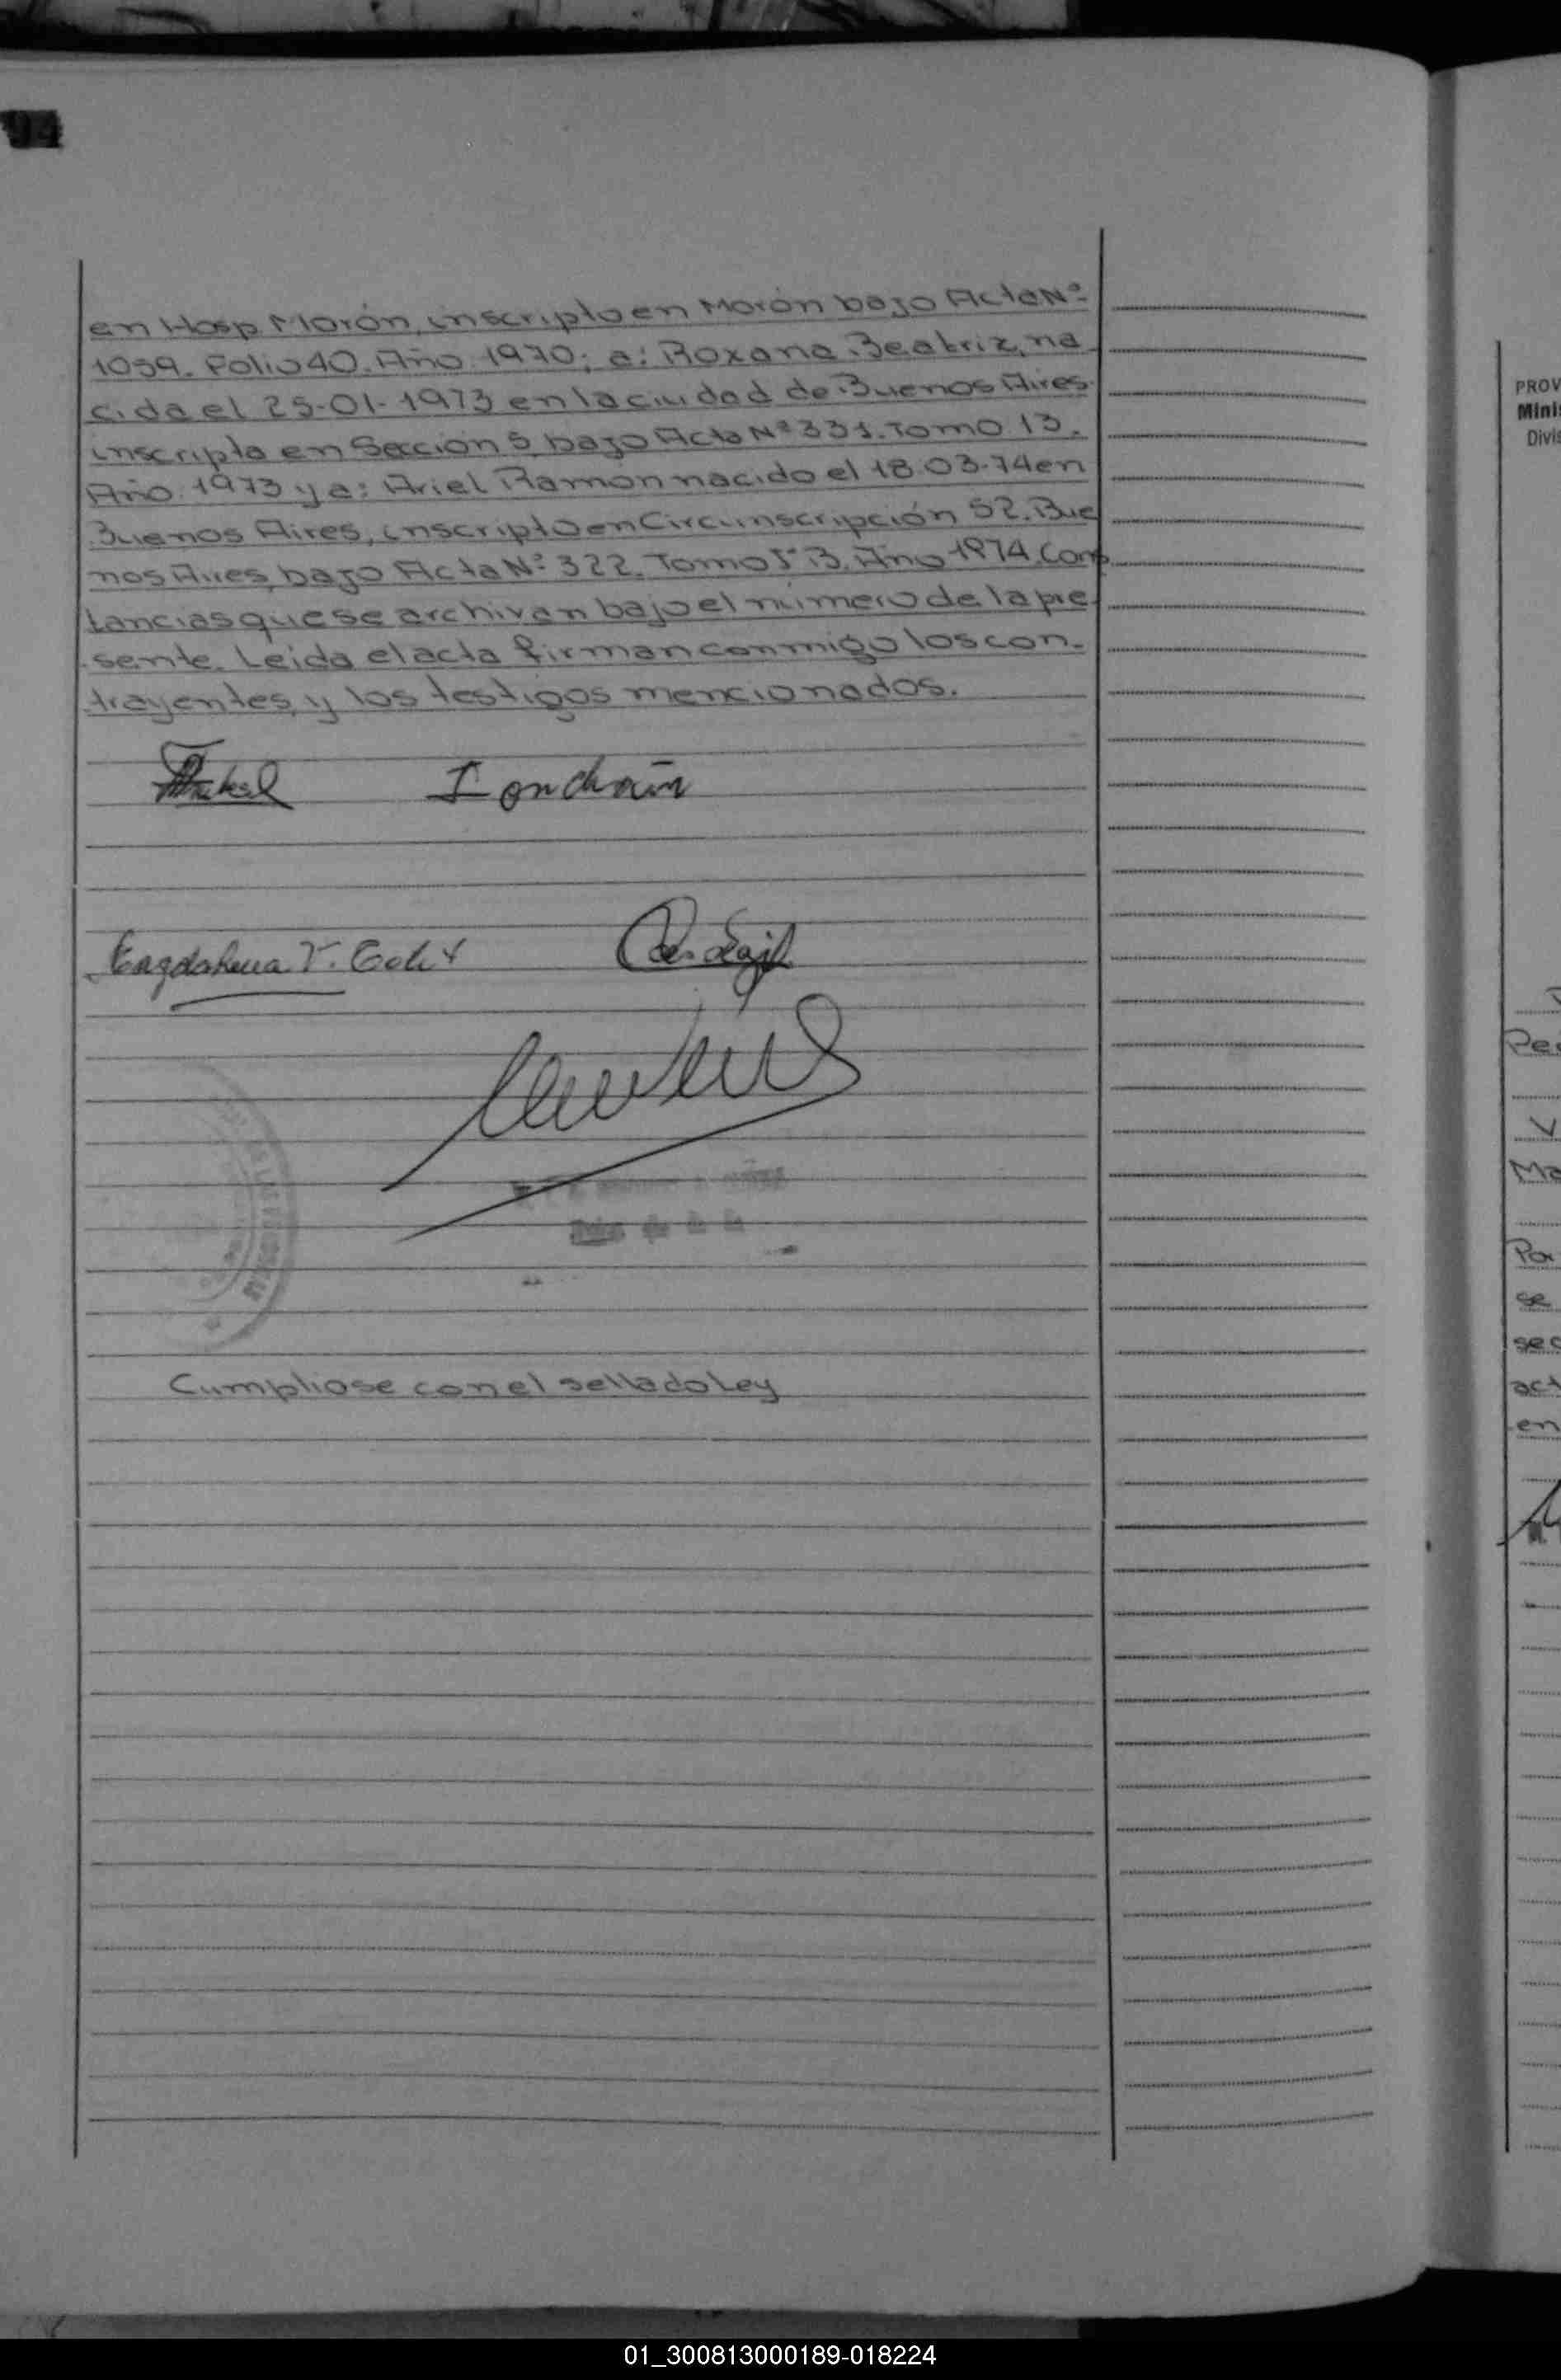 94
en Hosp. Morón, inscripto en Morón bajo Acta Nº
1059. Folio 40. Año 1970; a: Roxana Beatriz, na
cida el 25-01-1973 en la ciudad de Buenos Aires.
inscripta en Sección 5, bajo Acta Nº 331. Tomo 13.
Año 1973 y a: Ariel Ramón nacido el 18.03.74 en
Buenos Aires, inscripto en Circunscripción 52. Bue
nos Aires, bajo Acta Nº 322. Tomo 1º B. Año 1974. Cons
tancias que se archivan bajo el número de la pre-
sente. Leída el acta firman conmigo los con-
trayentes, y los testigos mencionados.
Cumpliose con el sellado Ley
PROV
Minis
Divis
Pe
V
Ma
Por
se
sec
act
en
01_300813000189-018224